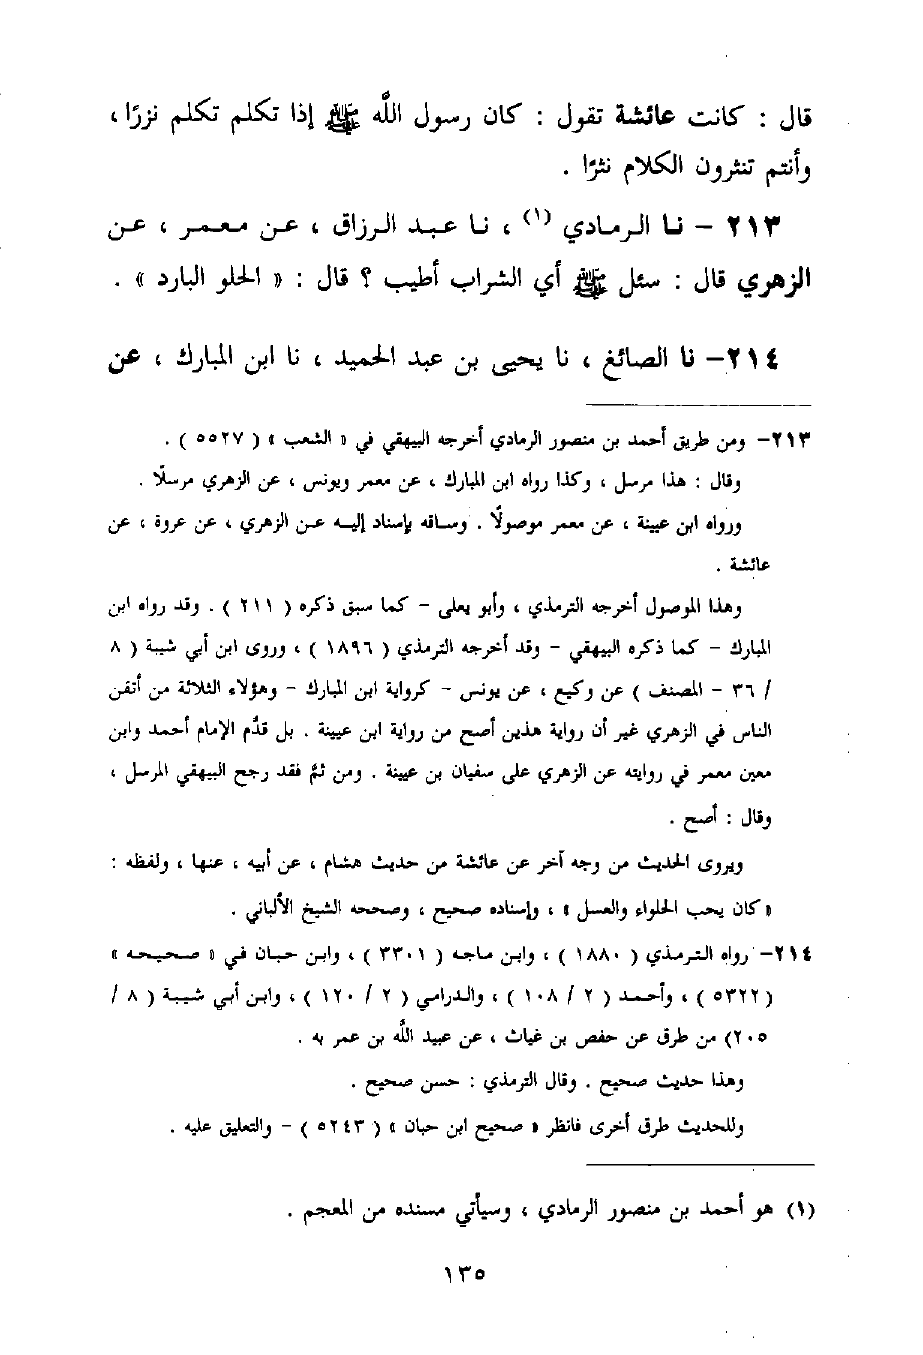 قال : كانت عائشة تقول : كان رسول اللَّه ﷺ إذا تكلم تكلم نزرًا ،
وأنتم تنثرون الكلام نثرًا .
٢١٣ – نـا الرمادي (١) ، نـا عبد الرزاق ، عن معمر ، عن
الزهري قال : سئل ﷺ أي الشراب أطيب ؟ قال : « الحلو البارد » .
٢١٤– نا الصائغ ، نا يحيى بن عبد الحميد ، نا ابن المبارك ، عن
٢١٣– ومن طريق أحمد بن منصور الرمادي أخرجه البيهقي في « الشعب » ( ٥٥٢٧ ) .
وقال : هذا مرسل ، وكذا رواه ابن المبارك ، عن معمر ويونس ، عن الزهري مرسلًا .
ورواه ابن عيينة ، عن معمر موصولًا . وساقه بإسناد إليه عن الزهري ، عن عروة ، عن
عائشة .
وهذا الموصول أخرجه الترمذي ، وأبو يعلى – كما سبق ذكره ( ٢١١ ) . وقد رواه ابن
المبارك – كما ذكره البيهقي – وقد أخرجه الترمذي ( ١٨٩٦ ) ، وروى ابن أبي شيبة ( ٨
/ ٣٦ – المصنف ) عن وكيع ، عن يونس – كرواية ابن المبارك – وهؤلاء الثلاثة من أتقن
الناس في الزهري غير أن رواية هذين أصح من رواية ابن عيينة . بل قدَّم الإمام أحمد وابن
معين معمر في روايته عن الزهري على سفيان بن عيينة . ومن ثمَّ فقد رجح البيهقي المرسل ،
وقال : أصح .
ويروى الحديث من وجه آخر عن عائشة من حديث هشام ، عن أبيه ، عنها ، ولفظه :
« كان يحب الحلواء والعسل » ، وإسناده صحيح ، وصححه الشيخ الألباني .
٢١٤– رواه الترمذي ( ١٨٨٠ ) ، وابن ماجه ( ٣٣٠١ ) ، وابن حبان في « صحيحه »
( ٥٣٢٢ ) ، وأحمد ( ٢ / ١٠٨ ) ، والدرامي ( ٢ / ١٢٠ ) ، وابن أبي شيبة ( ٨ /
٢٠٥) من طرق عن حفص بن غياث ، عن عبيد اللَّه بن عمر به .
وهذا حديث صحيح . وقال الترمذي : حسن صحيح .
وللحديث طرق أخرى فانظر « صحيح ابن حبان » ( ٥٢٤٣ ) – والتعليق عليه .
(١) هو أحمد بن منصور الرمادي ، وسيأتي مسنده من المعجم .
١٣٥